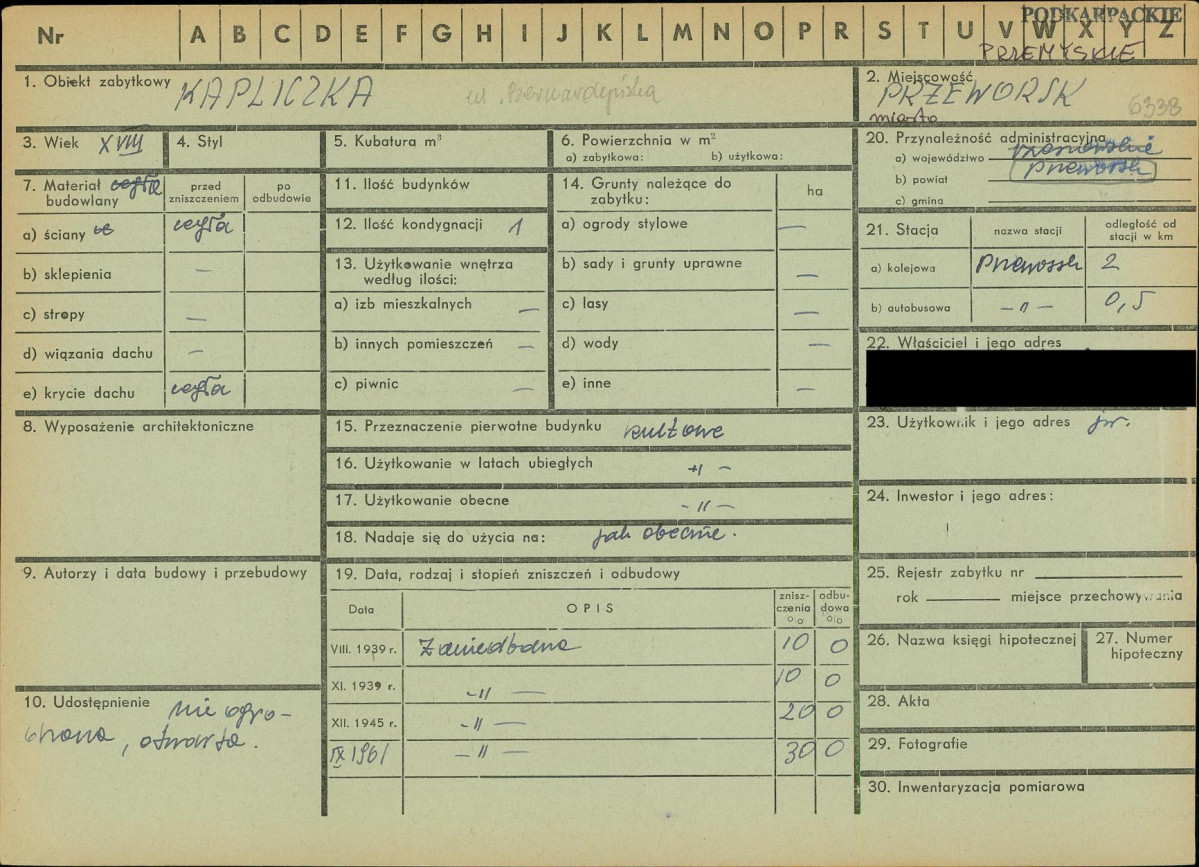 Nr A B C D E F G H I J K L M N O P R S T U V W X Y Z
PODKARPACKIE
PRZEMYSKIE
1. Obiekt zabytkowy KAPLICZKA
ul. Bernardyńska
2. Miejscowość
PRZEWORSK
miasto
6338
3. Wiek XVIII
4. Styl
5. Kubatura m³
6. Powierzchnia w m²
a) zabytkowa: b) użytkowa:
7. Materiał budowlany
przed zniszczeniem
po odbudowie
a) ściany cegła
b) sklepienia —
c) stropy —
d) wiązania dachu —
e) krycie dachu cegła
8. Wyposażenie architektoniczne
9. Autorzy i data budowy i przebudowy
10. Udostępnienie nie ogro-
dzona, otwarta.
11. Ilość budynków
12. Ilość kondygnacji 1
13. Użytkowanie wnętrza
według ilości:
a) izb mieszkalnych —
b) innych pomieszczeń —
c) piwnic —
14. Grunty należące do
zabytku:
ha
a) ogrody stylowe —
b) sady i grunty uprawne —
c) lasy —
d) wody —
e) inne —
15. Przeznaczenie pierwotne budynku kultowe
16. Użytkowanie w latach ubiegłych -"-
17. Użytkowanie obecne -"-
18. Nadaje się do użycia na: jak obecnie.
19. Data, rodzaj i stopień zniszczeń i odbudowy
Data OPIS zniszczenia % odbudowa %
VIII. 1939 r. Zaniedbana 10 0
XI. 1939 r. -"- 10 0
XII. 1945 r. -"- 20 0
IX 1961 -"- 30 0
20. Przynależność administracyjna
a) województwo
b) powiat Przeworsk
c) gmina
21. Stacja
nazwa stacji
odległość od stacji w km
a) kolejowa Przeworsk 2
b) autobusowa -"- 0,5
22. Właściciel i jego adres
23. Użytkownik i jego adres jw.
24. Inwestor i jego adres:
25. Rejestr zabytku nr
rok miejsce przechowywania
26. Nazwa księgi hipotecznej
27. Numer hipoteczny
28. Akta
29. Fotografie
30. Inwentaryzacja pomiarowa